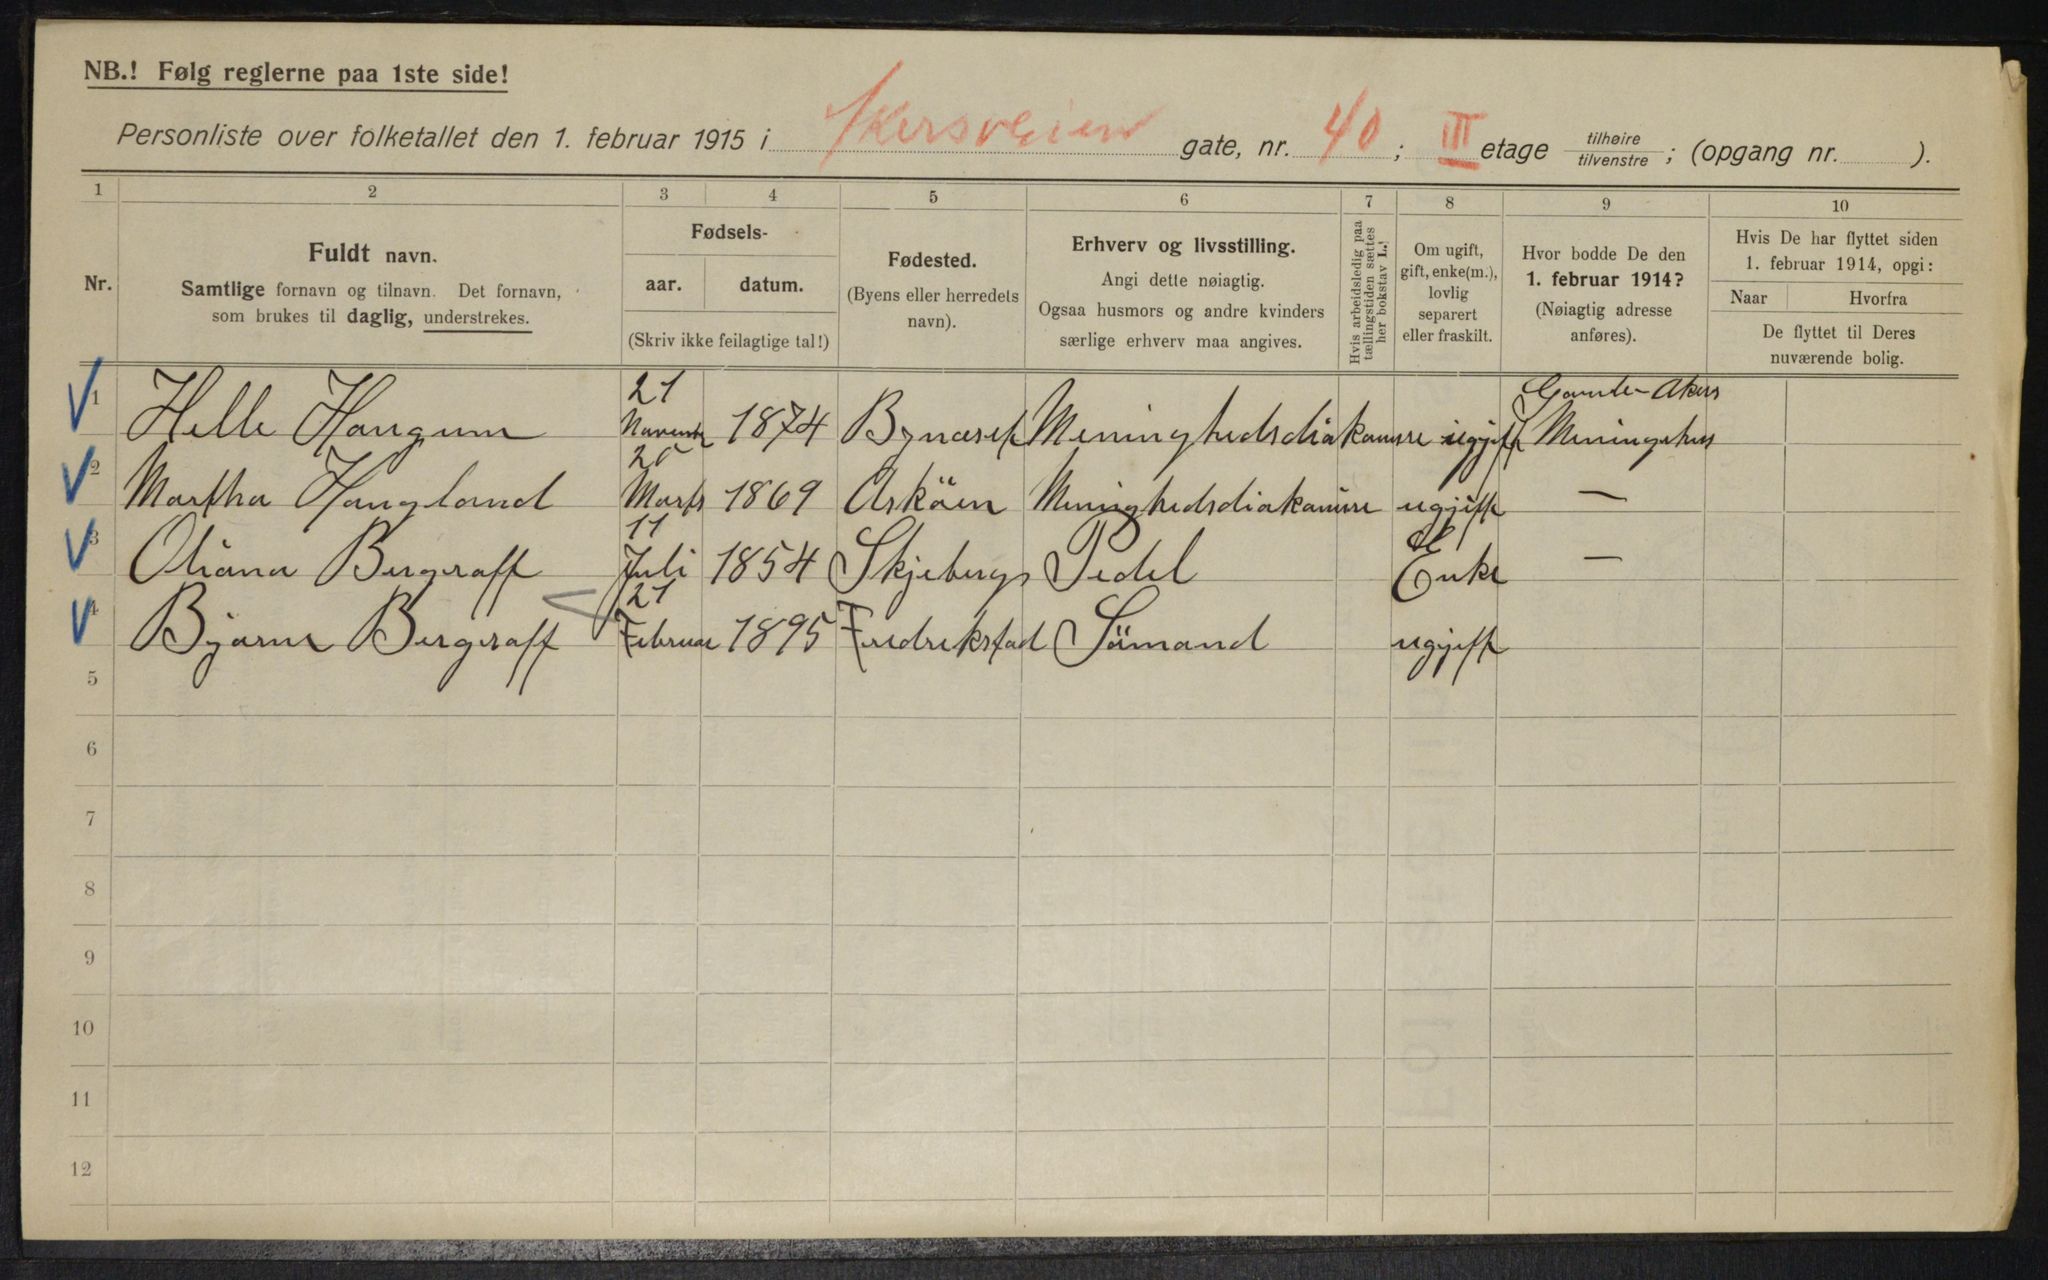 NB.! Følg reglerne paa 1ste side!
Personliste over folketallet den 1. februar 1915 i Akersveien gate, nr. 40; III etage tilhøire / tilvenstre; (opgang nr. ).
1 2 3 4 5 6 7 8 9 10
Nr.
Fuldt navn.
Samtlige fornavn og tilnavn. Det fornavn,
som brukes til daglig, understrekes.
Fødsels-
aar. datum.
(Skriv ikke feilagtige tal!)
Fødested.
(Byens eller herredets
navn).
Erhverv og livsstilling.
Angi dette nøiagtig.
Ogsaa husmors og andre kvinders
særlige erhverv maa angives.
Hvis arbeidsledig paa
tællingstiden sættes
her bokstav L.!
Om ugift,
gift, enke(m.),
lovlig
separert
eller fraskilt.
Hvor bodde De den
1. februar 1914?
(Nøiagtig adresse
anføres).
Hvis De har flyttet siden
1. februar 1914, opgi:
Naar Hvorfra
De flyttet til Deres
nuværende bolig.
21 Gamle-Akers
1 Helle Haugum 1874 Meninghedsdiakonisse ugjeft
2 Martha Haugland Marts 1869 Asköen Menighedsdiakonisse ugjeft —
11
3 Oliana Bergraff Juli 1854 Skjebergs Pedel Enke —
21
4 Bjarne Bergraff Februar 1895 Fredrikstad Sömand ugjeft
5
6
7
8
9
10
11
12